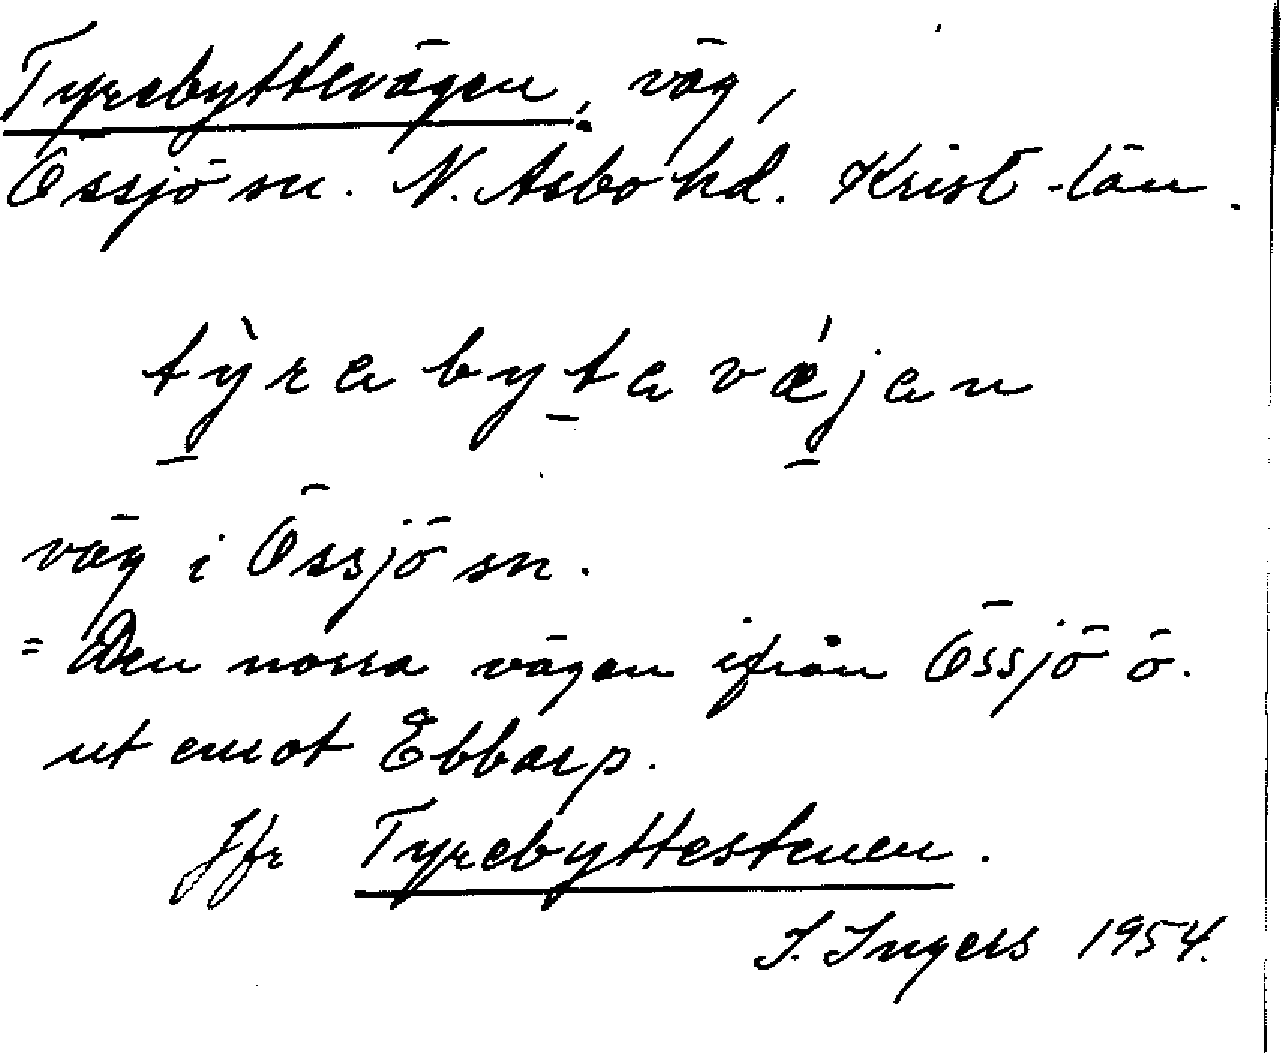 Tyrebyttevägen, väg,
Össjö sn. N. Åsbo hd. Krist-län.
tỳrabytavǽjan
väg i Össjö sn.
= Den norra vägen ifrån Össjö ö.
ut emot Ebbarp.
Jfr Tyrebyttestenen.
I. Ingers 1954.